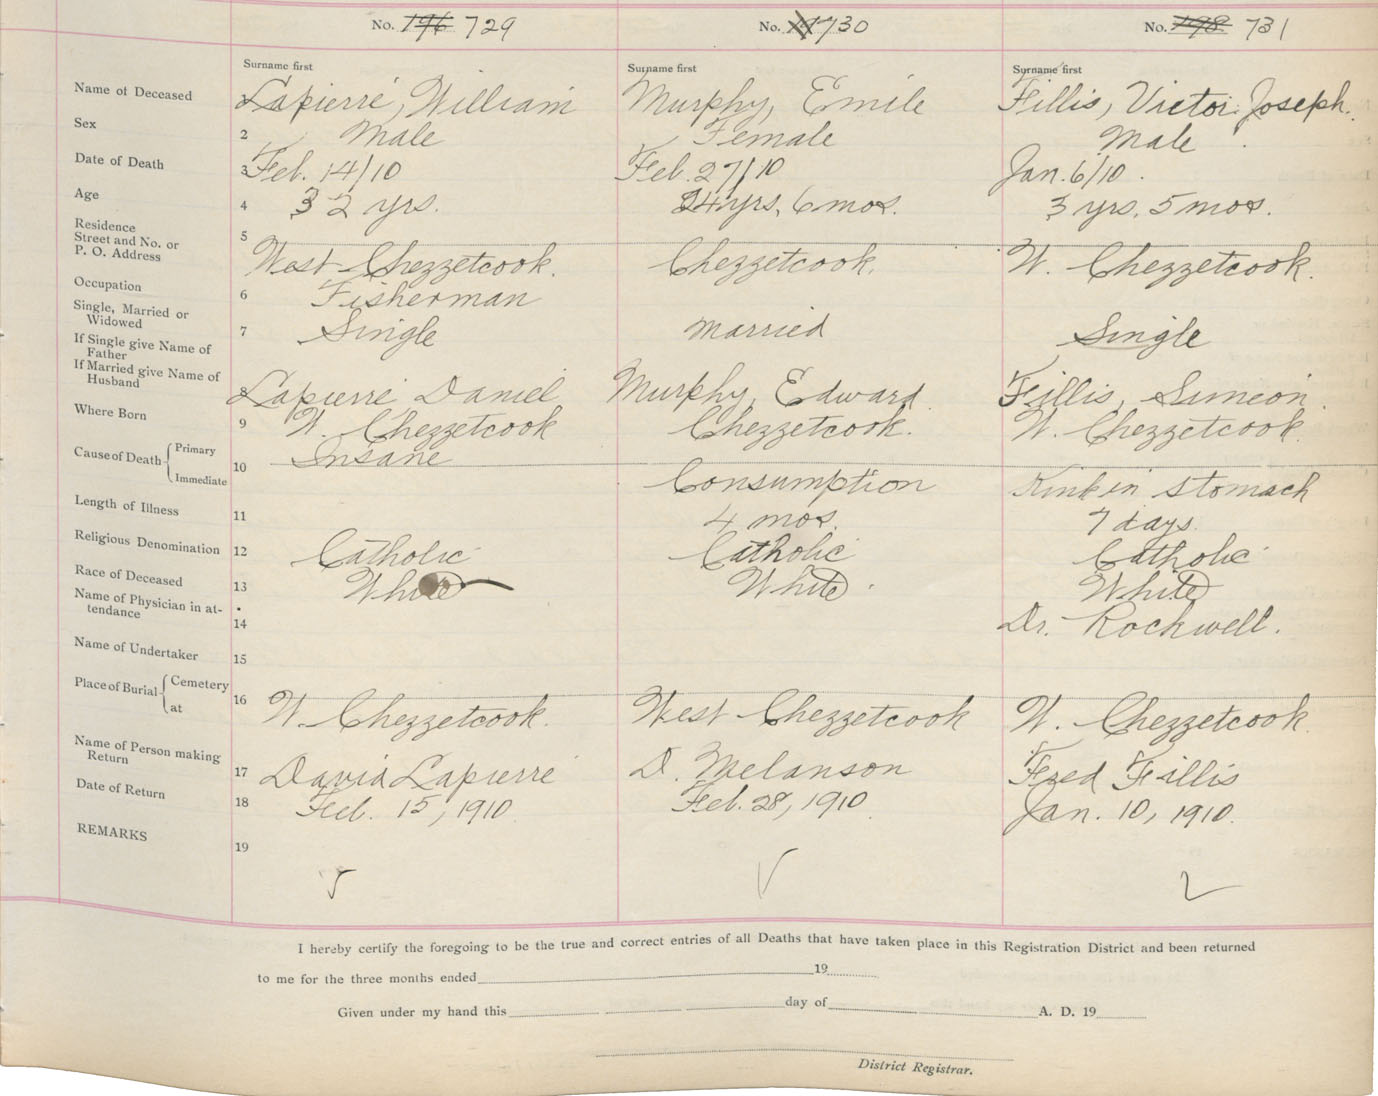 No. 196 729 No. 197 730 No. 198 731
Surname first Surname first Surname first
Name of Deceased 1 Lapierre, William Murphy, Emile Fillis, Victor Joseph.
Sex 2 Male Female Male
Date of Death 3 Feb. 14/10 Feb. 27/10 Jan. 6/10.
Age 4 32 yrs. 24 yrs, 6 mos. 3 yrs, 5 mos.
Residence
Street and No. or
P. O. Address 5 West Chezzetcook. Chezzetcook. W. Chezzetcook.
Occupation 6 Fisherman
Single, Married or
Widowed 7 Single Married Single
If Single give Name of
Father
If Married give Name of
Husband 8 Lapierre Daniel Murphy, Edward Fillis, Simeon.
Where Born 9 W. Chezzetcook Chezzetcook. W. Chezzetcook.
Cause of Death Primary Insane
Immediate 10 Consumption Kink in stomach
Length of Illness 11 4 mos. 7 days.
Religious Denomination 12 Catholic Catholic Catholic
Race of Deceased 13 White White White
Name of Physician in at-
tendance 14 Dr. Rockwell.
Name of Undertaker 15
Place of Burial Cemetery
at 16 W. Chezzetcook. West Chezzetcook W. Chezzetcook.
Name of Person making
Return 17 David Lapierre D. Melanson Fred Fillis
Date of Return 18 Feb. 15, 1910 Feb. 28, 1910 Jan. 10, 1910.
REMARKS 19
I hereby certify the foregoing to be the true and correct entries of all Deaths that have taken place in this Registration District and been returned
to me for the three months ended 19
Given under my hand this day of A. D. 19
District Registrar.